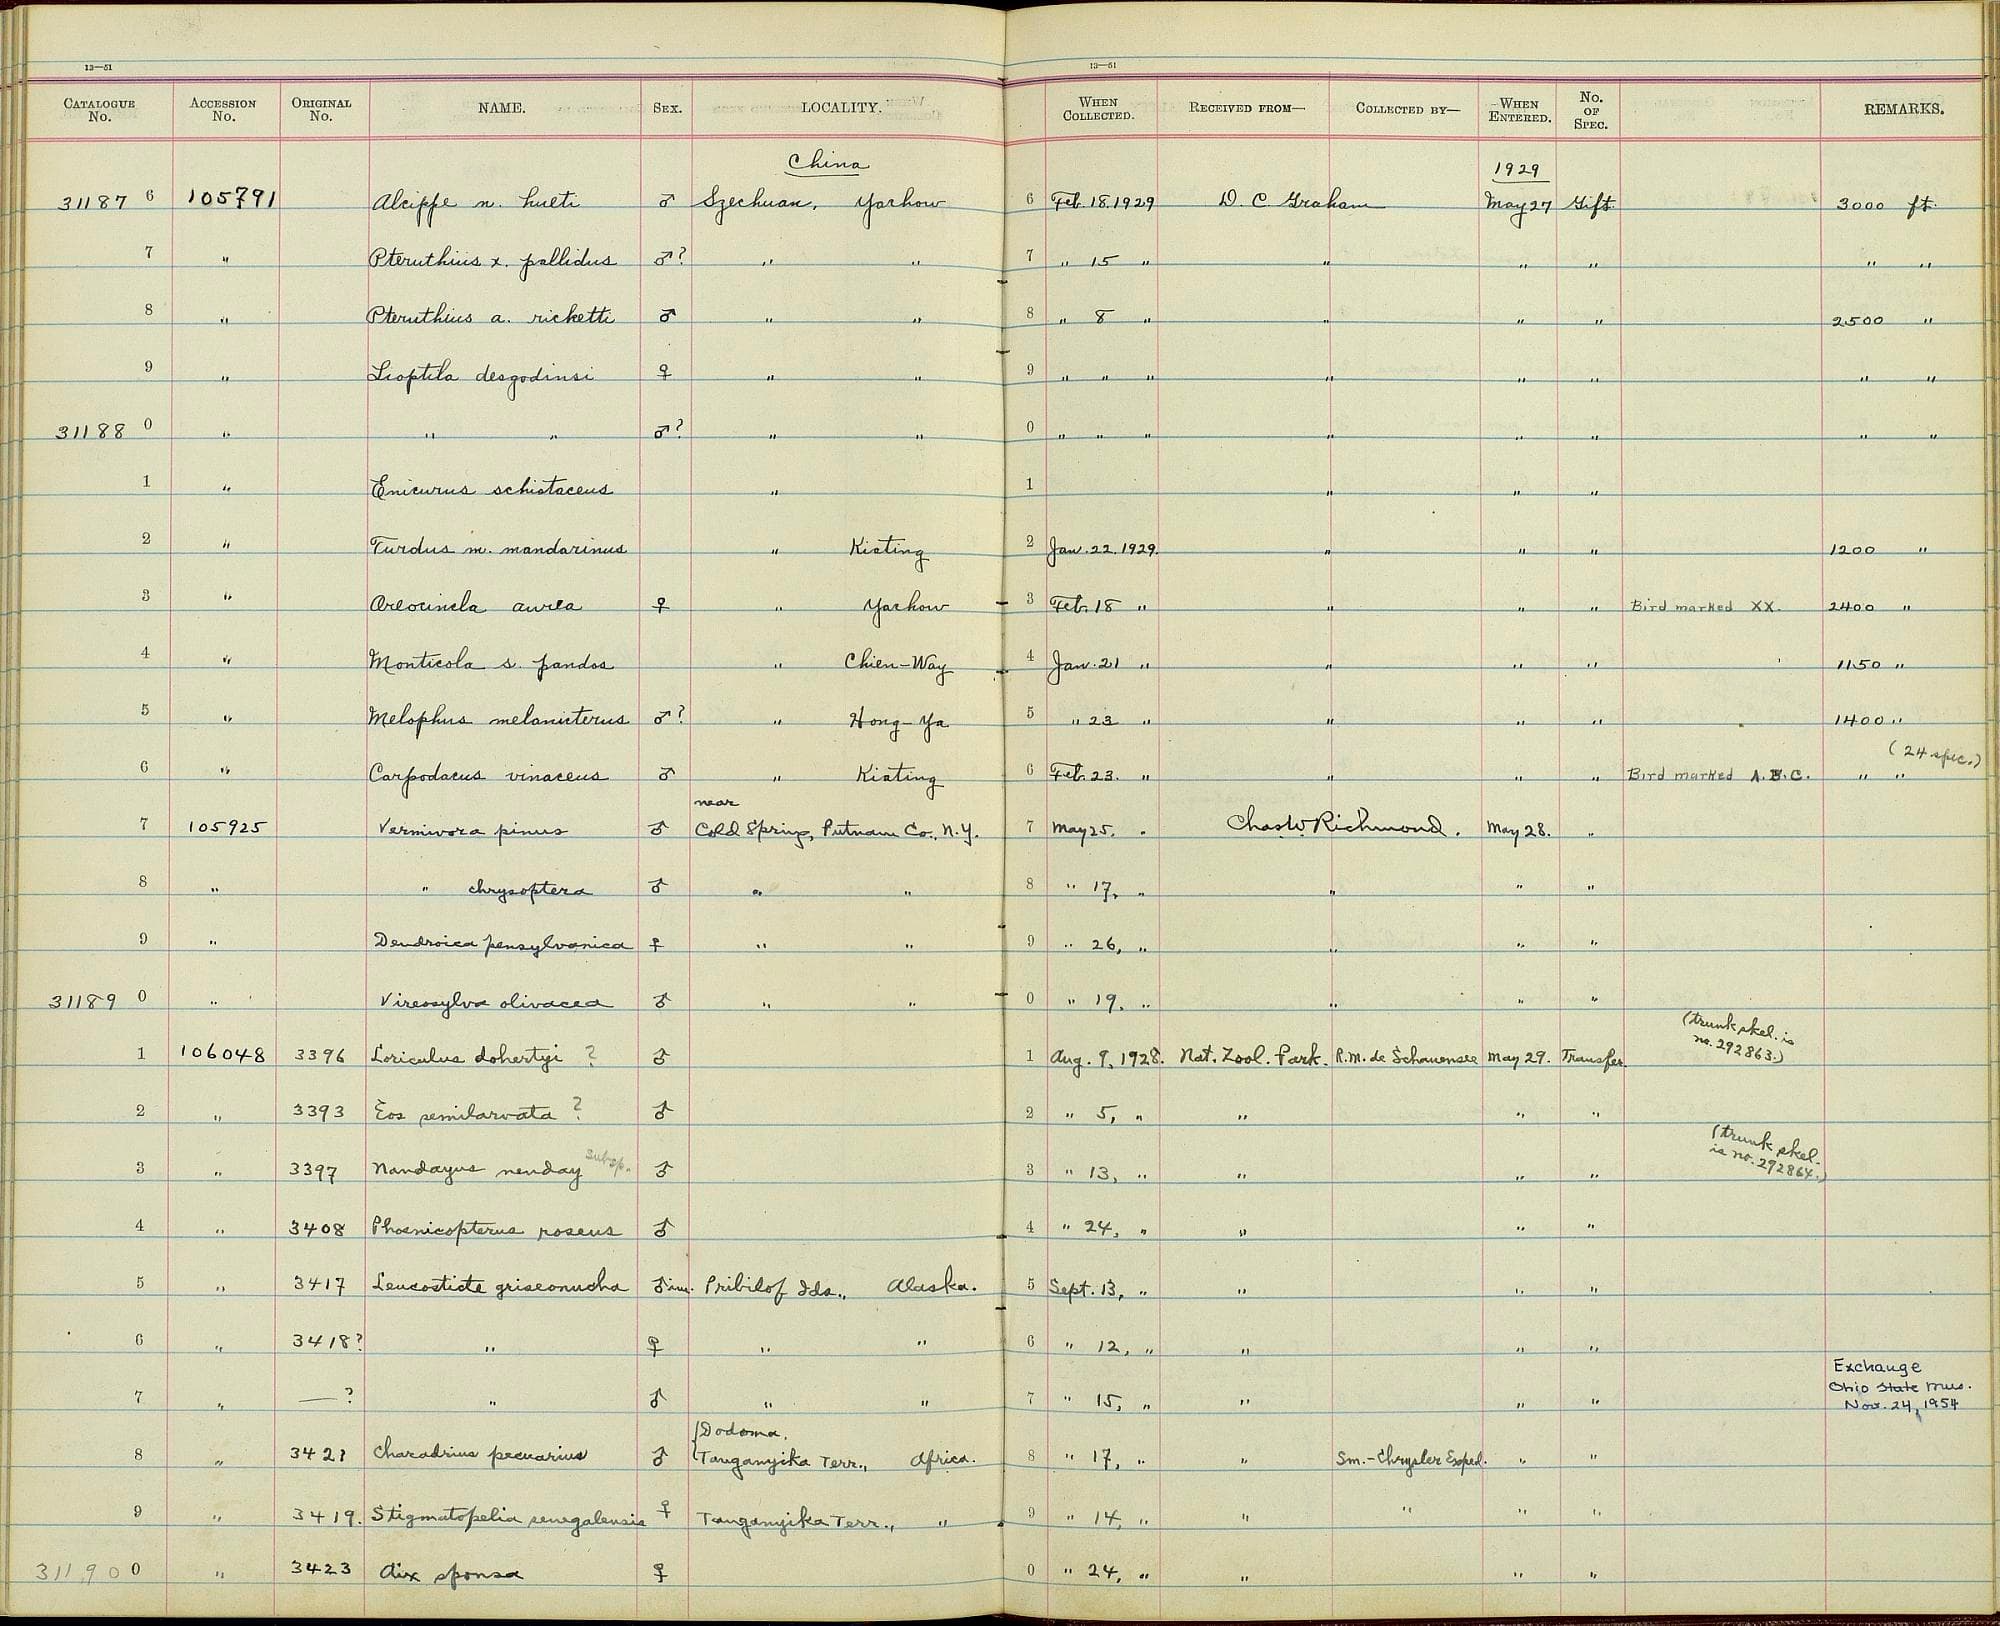 13—51 13—51
CATALOGUE No. ACCESSION No. ORIGINAL No. NAME. SEX. LOCALITY. WHEN COLLECTED. RECEIVED FROM— COLLECTED BY— WHEN ENTERED. No. OF SPEC. REMARKS.
China 1929
31187 6 105791 Alcippe n. hueti ♂ Szechuan, Yachow 6 Feb. 18. 1929 D. C. Graham May 27 Gift. 3000 ft.
7 " Pteruthius x. pallidus ♂? " " 7 " 15 " " " " " "
8 " Pteruthius a. ricketti ♂ " " 8 " 8 " " " " 2500 "
9 " Lioptila desgodinsi ♀ " " 9 " " " " " " " "
31188 0 " " " ♂? " " 0 " " " " " " " "
1 " Enicurus schistaceus " 1 " " "
2 " Turdus m. mandarinus " Kiating 2 Jan. 22. 1929. " " " 1200 "
3 " Oreocincla aurea ♀ " Yachow 3 Feb. 18 " " " " Bird marked XX. 2400 "
4 " Monticola s. pandoo " Chien-Way 4 Jan. 21 " " " " 1150 "
5 " Melophus melanicterus ♂? " Hong-Ya 5 " 23 " " " " 1400 "
(24 spec.)
6 " Carpodacus vinaceus ♂ " Kiating 6 Feb. 23. " " " " Bird marked A.B.C. " "
near
7 105925 Vermivora pinus ♂ Cold Spring, Putnam Co., N.Y. 7 May 25, " Chas. W. Richmond. May 28. "
8 " " chrysoptera ♂ " " 8 " 17, " " " "
9 " Dendroica pensylvanica ♀ " " 9 " 26, " " " "
31189 0 " Vireosylva olivacea ♂ " " 0 " 19, " " " "
(trunk skel. is
no. 292863.)
1 106048 3396 Loriculus dohertyi ? ♂ 1 Aug. 9, 1928. Nat. Zool. Park. R.M. de Schauensee May 29. Transfer.
2 " 3393 Eos semilarvata ? ♂ 2 " 5, " " " "
(trunk skel.
is no. 292864.)
3 " 3397 Nandayus nenday subsp. ♂ 3 " 13, " " " "
4 " 3408 Phoenicopterus roseus ♂ 4 " 24, " " " "
5 " 3417 Leucosticte griseonucha ♂ im. Pribilof Ids., Alaska. 5 Sept. 13, " " " "
6 " 3418? " ♀ " " 6 " 12, " " " "
Exchange
Ohio State Mus.
Nov. 24, 1954
7 " —? " ♂ " " 7 " 15, " " " "
{Dodoma,
8 " 3421 Charadrius pecuarius ♂ Tanganyika Terr., Africa. 8 " 17, " " Sm.-Chrysler Exped. " "
9 " 3419. Stigmatopelia senegalensis ♀ Tanganyika Terr., " 9 " 14, " " " " "
31190 0 " 3423 Aix sponsa ♀ 0 " 24, " " " "